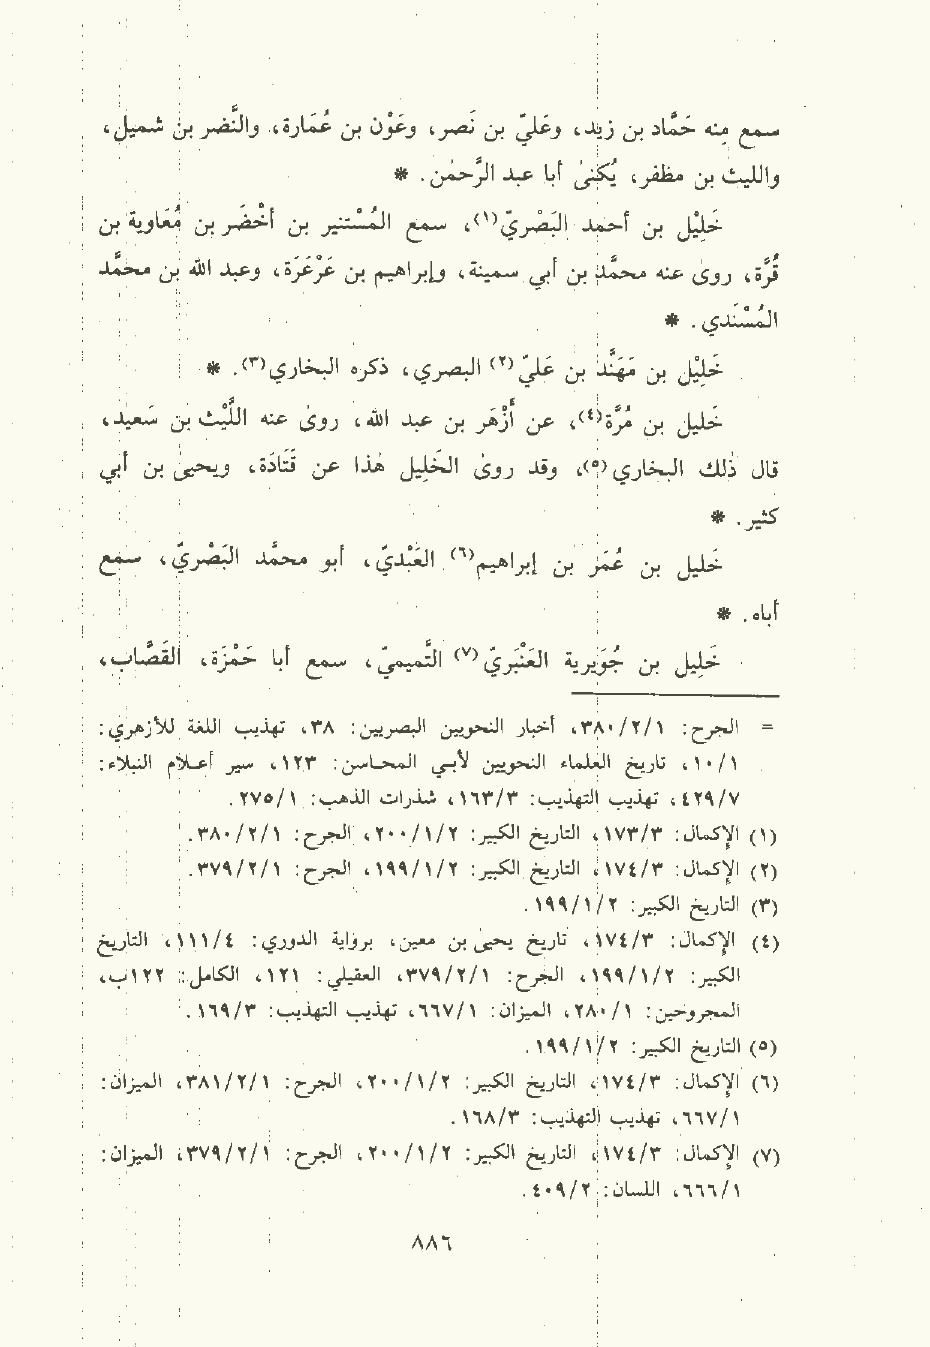 سمع مِنه حَمَّاد بن زيد، وعَليّ بن نَصر، وعَوْن بن عُمَارة، والنَّضر بن شميل،
والليث بن مظفر، يُكنىٰ أبا عبد الرَّحمٰن. *
خَلِيْل بن أحمد البَصْريّ(١)، سمع المُسْتنير بن أخْضَر بن مُعَاوية بن
قُرَّة، روىٰ عنه محمَّد بن أبي سمينة، وإبراهيم بن عَرْعَرَة، وعبد الله بن محمَّد
المُسْنَدي. *
خَلِيْل بن مَهَنَّد بن عَليّ(٢) البصري، ذكره البخاري(٣). *
خَليل بن مُرَّة(٤)، عن أَزْهَر بن عبد الله، روىٰ عنه اللَّيْث بن سَعيد،
قال ذٰلك البخاري(٥)، وقد روىٰ الخَلِيل هٰذا عن قَتَادَة، ويحيىٰ بن أبي
كثير. *
خَليل بن عُمَر بن إبراهيم(٦) العَبْديّ، أبو محمَّد البَصْريّ، سمع
أباه. *
خَلِيل بن جُوَيرية العَنْبَريّ(٧) التَّميميّ، سمع أبا حَمْزَة، القَصَّاب،
= الجرح: ٣٨٠/٢/١، أخبار النحويين البصريين: ٣٨، تهذيب اللغة للأزهري:
١٠/١، تاريخ العلماء النحويين لأبي المحاسن: ١٢٣، سير أعلام النبلاء:
٤٢٩/٧، تهذيب التهذيب: ١٦٣/٣، شذرات الذهب: ٢٧٥/١.
(١) الإكمال: ١٧٣/٣، التاريخ الكبير: ٢٠٠/١/٢، الجرح: ٣٨٠/٢/١.
(٢) الإكمال: ١٧٤/٣، التاريخ الكبير: ١٩٩/١/٢، الجرح: ٣٧٩/٢/١.
(٣) التاريخ الكبير: ١٩٩/١/٢.
(٤) الإكمال: ١٧٤/٣، تاريخ يحيىٰ بن معين، برواية الدوري: ١١١/٤، التاريخ
الكبير: ١٩٩/١/٢، الجرح: ٣٧٩/٢/١، العقيلي: ١٢١، الكامل: ١٢٢ب،
المجروحين: ٢٨٠/١، الميزان: ٦٦٧/١، تهذيب التهذيب: ١٦٩/٣.
(٥) التاريخ الكبير: ١٩٩/١/٢.
(٦) الإكمال: ١٧٤/٣، التاريخ الكبير: ٢٠٠/١/٢، الجرح: ٣٨١/٢/١، الميزان:
٦٦٧/١، تهذيب التهذيب: ١٦٨/٣.
(٧) الإكمال: ١٧٤/٣، التاريخ الكبير: ٢٠٠/١/٢، الجرح: ٣٧٩/٢/١، الميزان:
٦٦٦/١، اللسان: ٤٠٩/٢.
٨٨٦